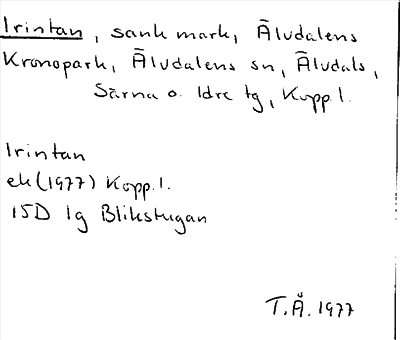 Irintan, sank mark, Älvdalens
Kronopark, Älvdalens sn, Älvdals,
Särna o. Idre tg, Kopp.l.
Irintan
ek (1977) Kopp.l.
15D 1g Blikstugan
T.Å. 1977